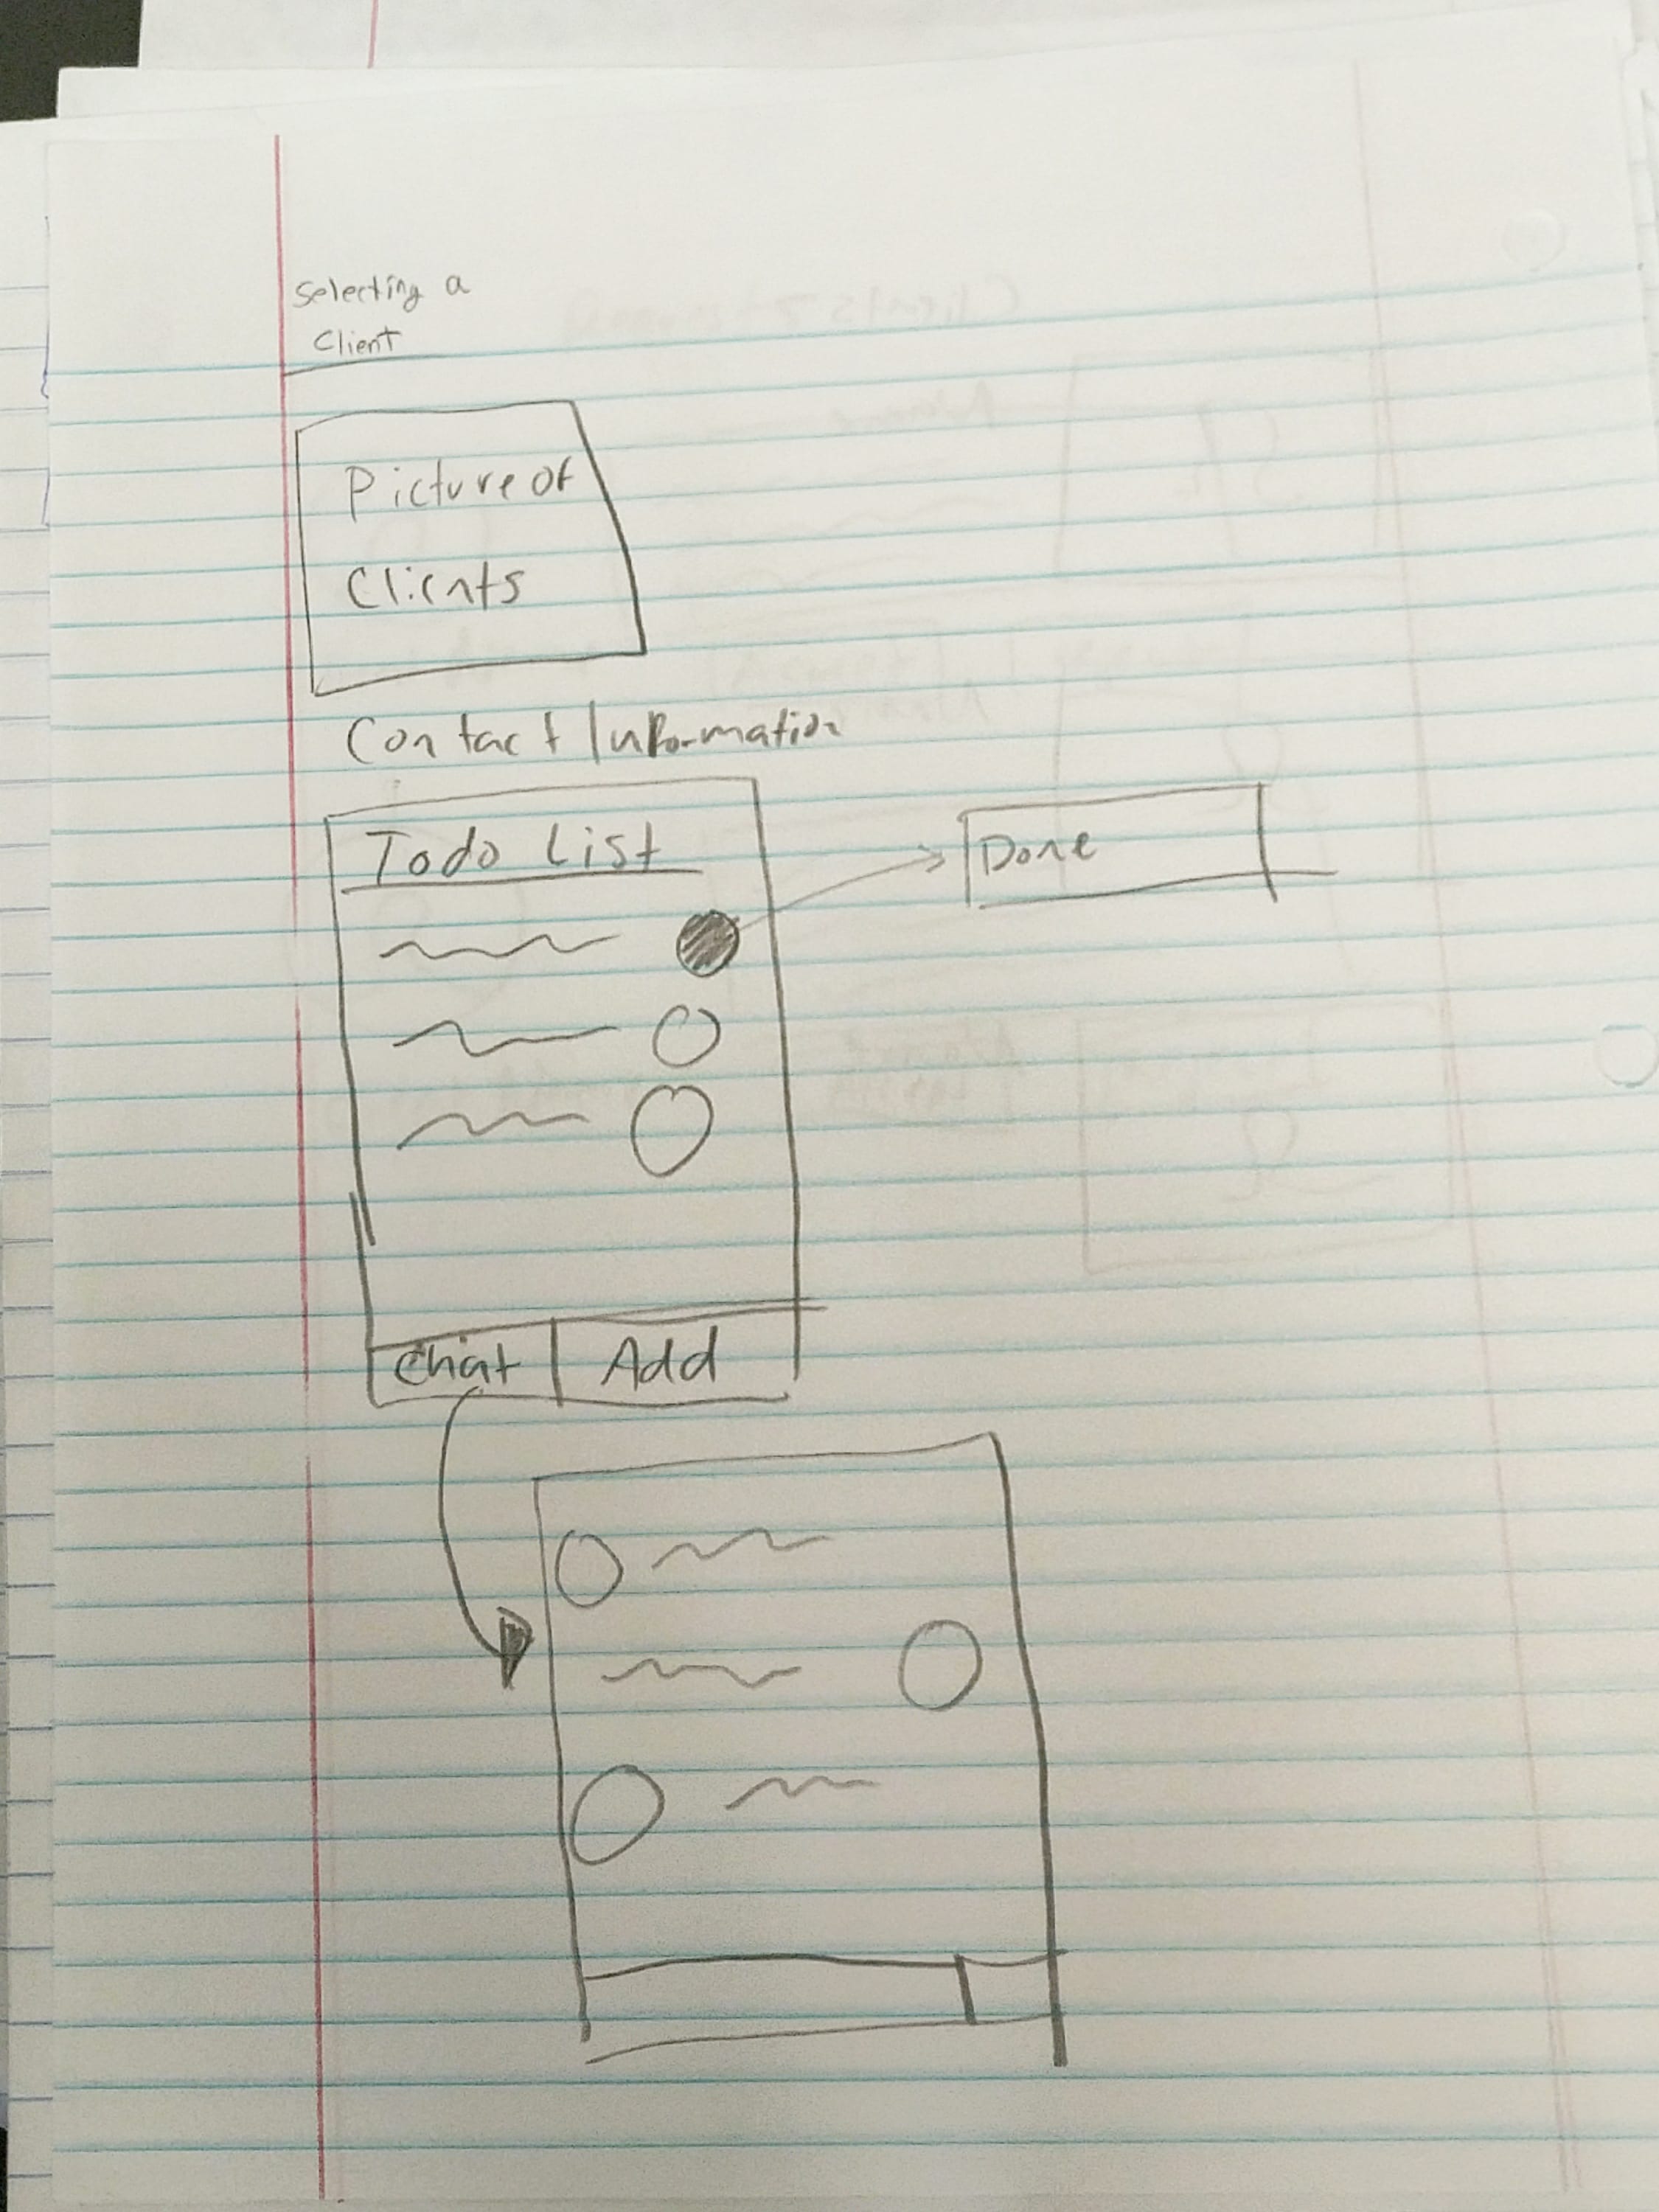 Selecting a
Client
Picture of
Clients
Contact Information
Todo List
Done
Chat
Add